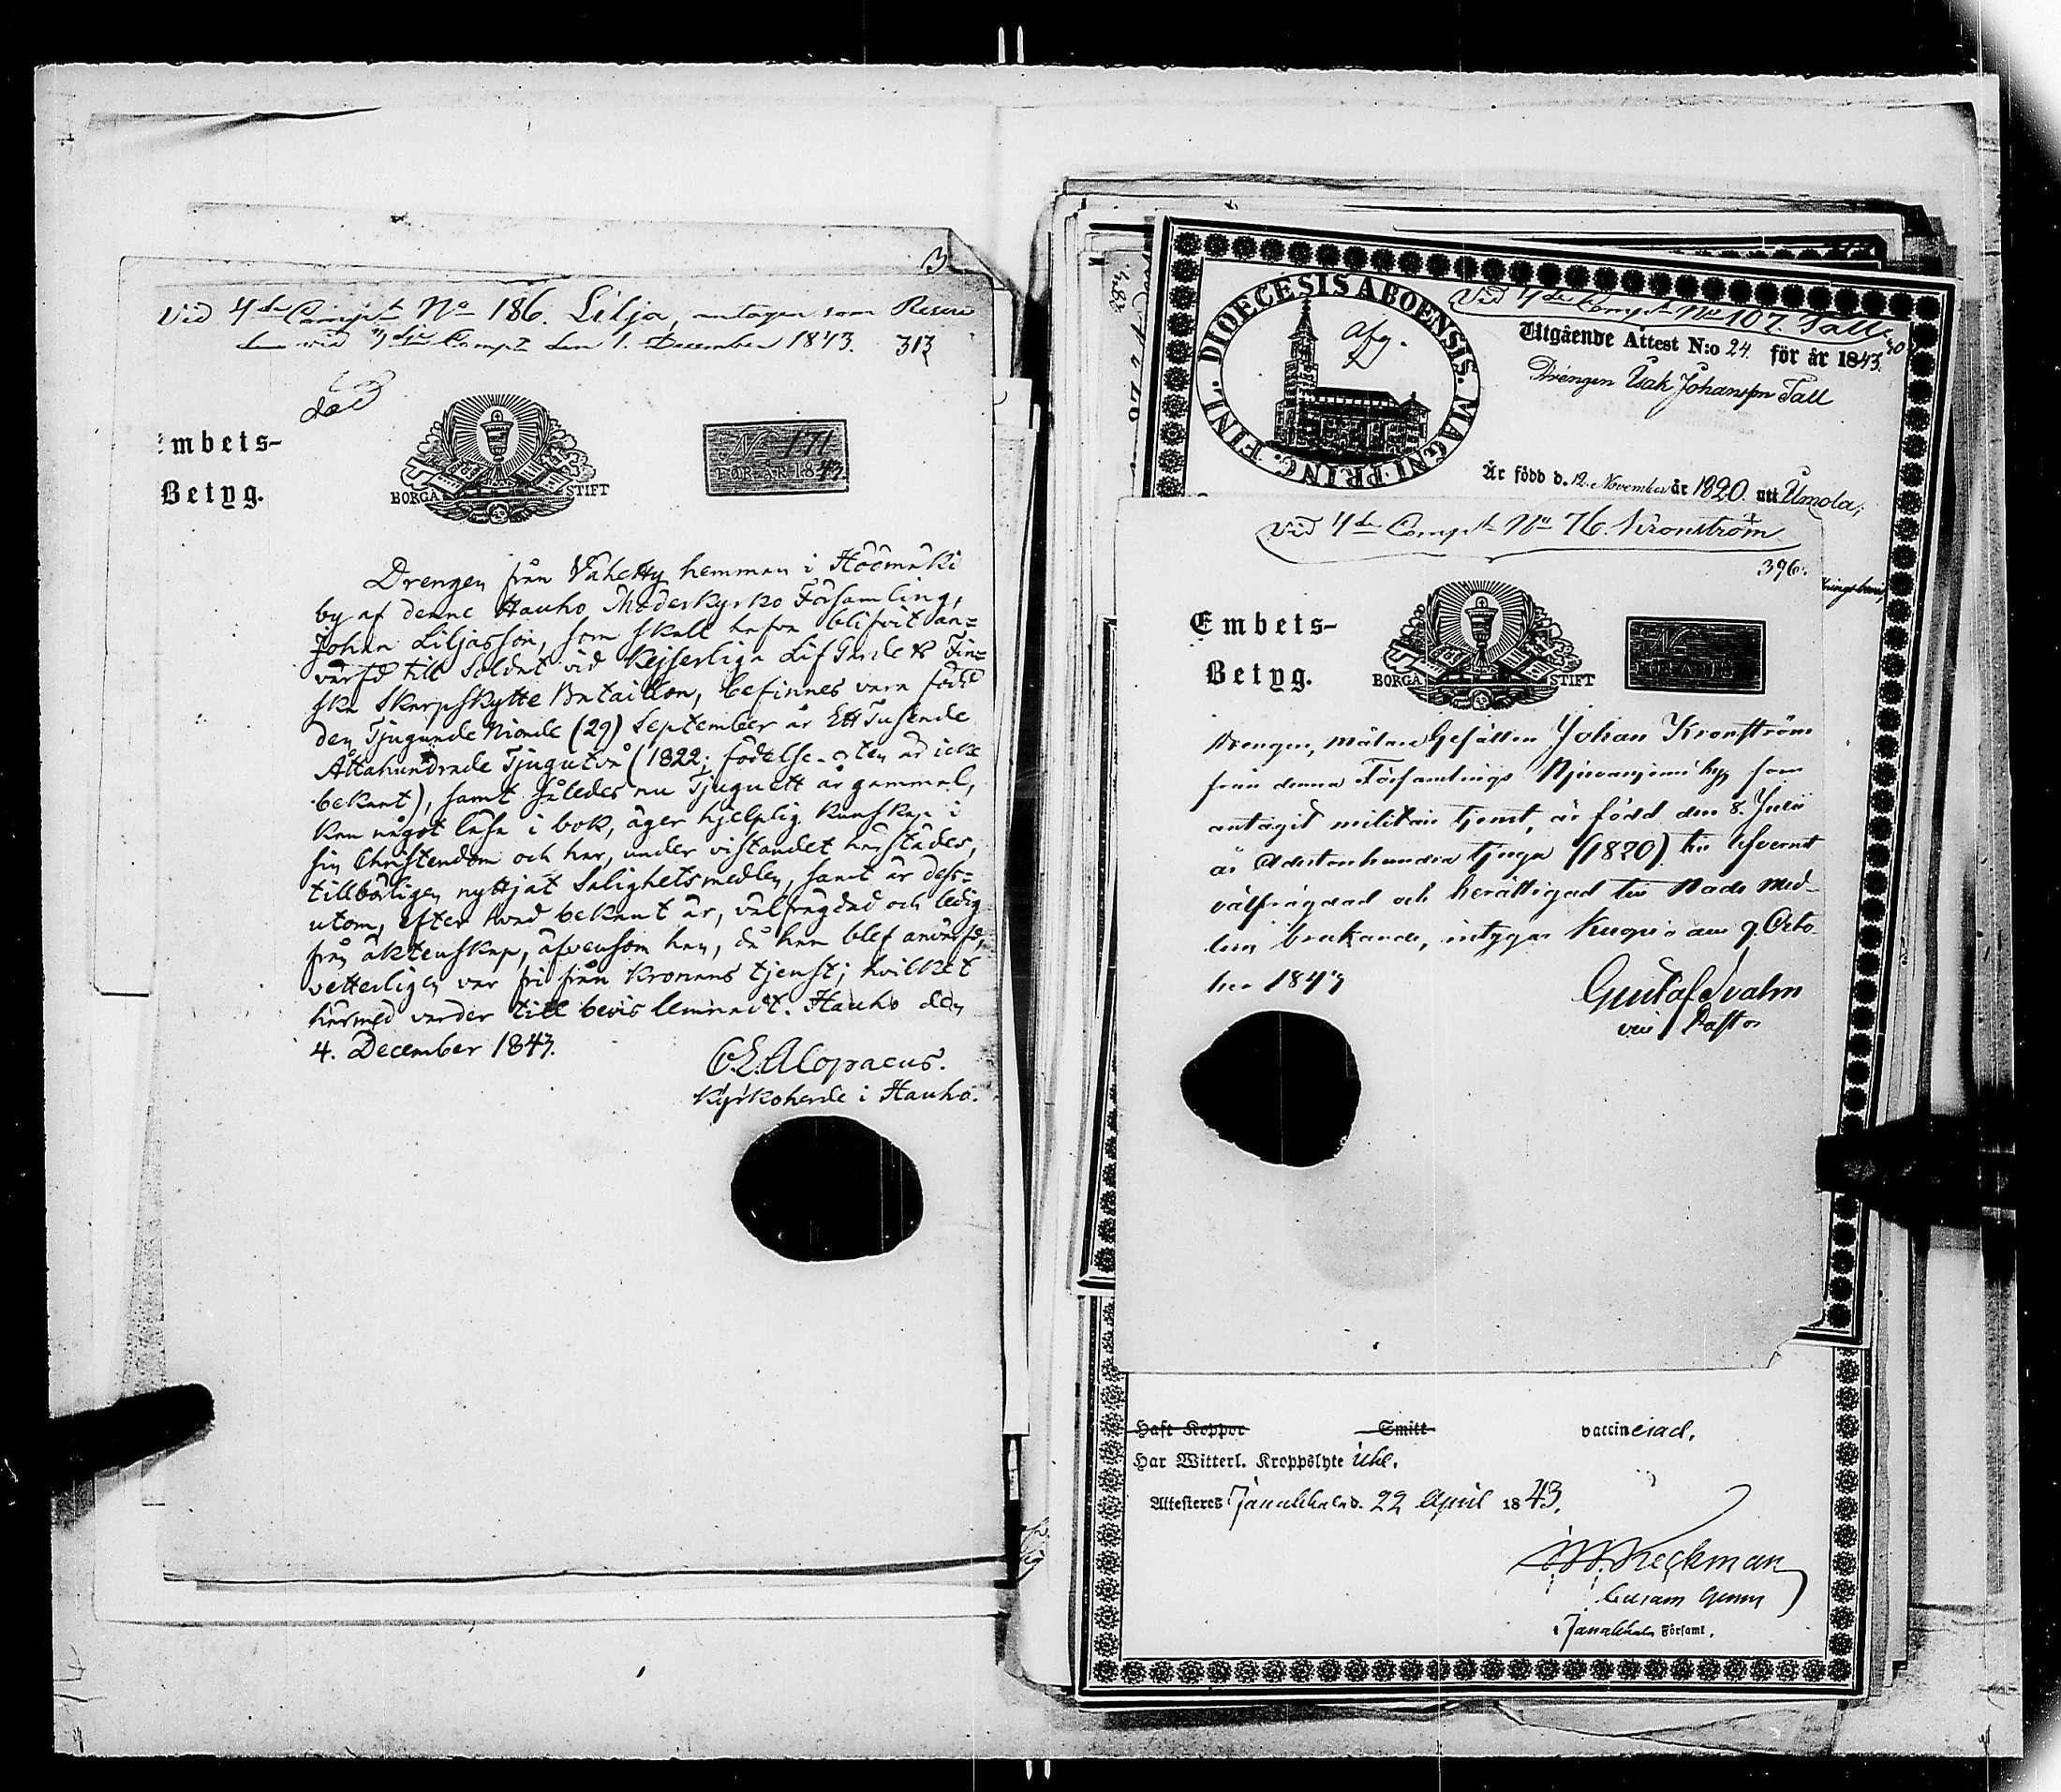 3
Vid 4de Comp:t No 186. Lilja, antagen som Reserv
den vid 4de Comp: den 1. December 1843. 313
död
mbets-
Betyg.
BORGÅ STIFT
No 171
FÖR ÅR 1843.
Drengen från Vähetty hemman i Hödmäki
by af denne Hauho Moderkyrko Församling,
Johan Liljasson, som skall hafva blifvit an=
värfd till Soldat vid Kejserliga Lif Gardets Fin=
ska Skarpskytte Bataillon, befinnes vara född
den Tjugunde Nionde (29) September år Ett Tusende
Åttahundrade Tjugutvå (1822; födelse-orten är icke
bekant), samt således nu Tjuguett år gammal,
kan något läsa i bok, äger hjelplig kunskap i
sin Christendom och har, under vistandet härstädes,
tillbörligen nyttjat Salighetsmedlen, samt är dess=
utom, efter hvad bekant är, välfrägdad och ledig
från äktenskap, äfvensom han, då han blef anvärfd,
vetterligen var fri från Kronans tjenst; hvilket
härmed varder till bevis lemnadt. Hauho den
4. December 1843.
C. E. Alopaeus.
Kyrkoherde i Hauho.
DIOECESIS ABOENSIS. MAGNI PRINC. FINL.
afg.
Vid 4de Comp:t No 107. Tall
Utgående Attest N:o 24. för år 1843.
Drengen Isak Johansson Tall
Är född d. 12 November år 1820. uti Urmola;
Vid 4de Comp:t No 76. Kronström
396.
Embets-
Betyg.
BORGÅ STIFT
No
FÖR ÅR 18
Drengen, Målare Gesällen Johan Kronström
från denna Församlings by som
antagit militär tjenst, är född den 8. Julii
år Adertonhundra tjugu (1820).
välfrägdad och berättigad till Nade Med-
lens brukande, intygar Kuopio den 9. Octo-
ber 1843
Gustaf Svahn
vice Pastor
Haft Koppor Smitt vaccinerad.
Har Witterl. Kroppslyte icke.
Attesteras Janakkala d. 22 April 1843.
Heckman
i Janakkala Församl.